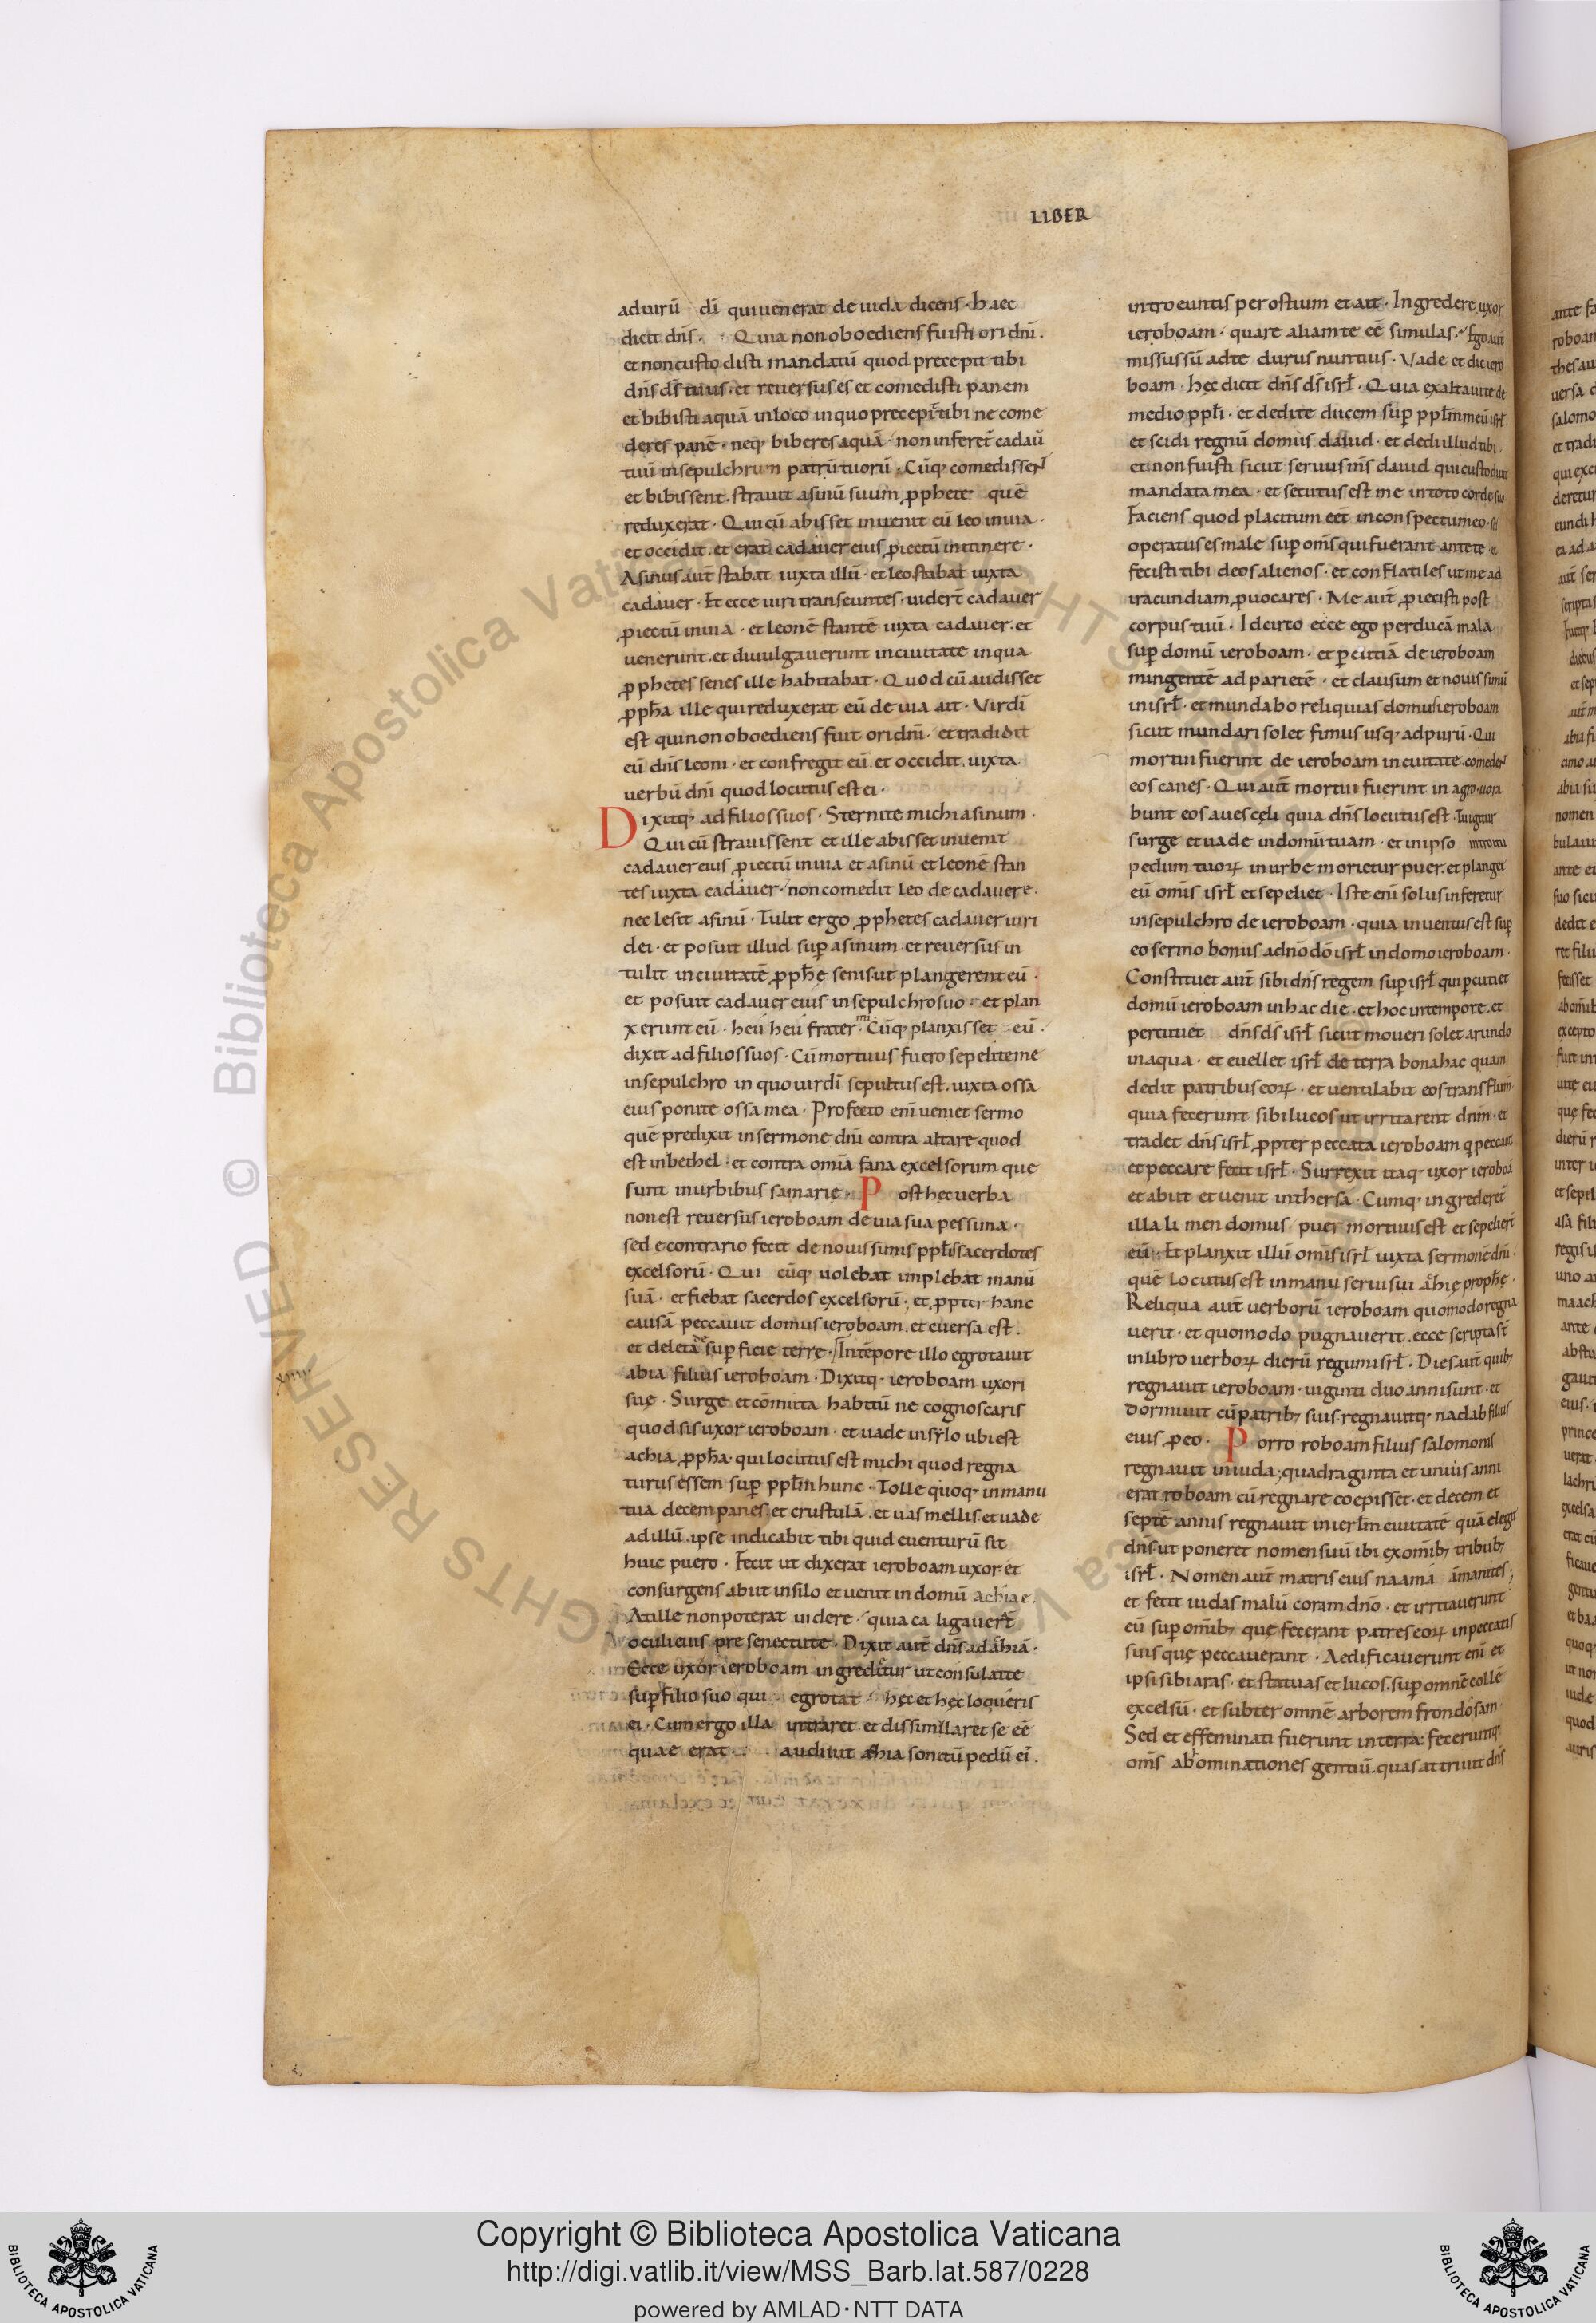 LIBER
ad uirū di qui uenerat de iuda dicens · haec
dicit dn̄s · Quia non oboediens fuisti ori dn̄i ·
et non custodisti mandatū quod precepit tibi
dn̄s ds̄ tuus · et reuersus es et comedisti panem
et bibisti aquā in loco in quo precepit tibi ne come
deres panē · neq; biberes aquā · non inferet̄ cadau̅
tuū in sepulchrum patrū tuorū · Cūq; comedisset
et bibissent · strauit asinū suum ꝓphete quē
reduxerat · Qui cū abisset inuenit eū leo in uia ·
et occidit · et erat cadauer eius ꝓiectū in itinere ·
Asinus aut̄ stabat iuxta illū · et leo stabat iuxta
cadauer · Et ecce uiri transeuntes · uidert̄ cadauer
ꝓiectū in uia · et leonē stantē iuxta cadauer · et
uenerunt · et diuulgauerunt in ciuitate in qua
ꝓphetes senes ille habitabat · Quod cū audisset
ꝓph̄a ille qui reduxerat eū de uia ait · Vir di
est qui non oboediens fuit ori dn̄i · et tradidit
eū dn̄s leoni · et confregit eū · et occidit · iuxta
uerbū dn̄i quod locutus est ei ·
Dixitq; ad filios suos · Sternite michi asinum ·
Qui cū strauissent et ille abisset inuenit
cadauer eius ꝓiectū in uia et asinū et leonē stan
tes iuxta cadauer · non comedit leo de cadauere ·
nec lesit asinū · Tulit ergo ꝓphetes cadauer uiri
dei · et posuit illud suꝑ asinum · et reuersus in
tulit in ciuitatē ꝓph̄ę senis · ut plangerent eū ·
et posuit cadauer eius in sepulchro suo · et plan
xerunt eū · heu heu frater mi · Cūq; planxisset eū ·
dixit ad filios suos · Cū mortuus fuero sepelite me
in sepulchro in quo uir di sepultus est · iuxta ossa
eius ponite ossa mea · Profecto eni ueniet sermo
quē predixit in sermone dn̄i contra altare quod
est in bethel · et contra omīa fana excelsorum quę
sunt in urbibus samarię · Post hęc uerba
non est reuersus ieroboam de uia sua pessima ·
sed e contrario fecit de nouissimis ppl̄i sacerdotes
excelsorū · Qui cūq; uolebat implebat manū
suā · et fiebat sacerdos excelsorū · et ꝓpter hanc
causā peccauit domus ieroboam · et euersa est ·
et deleta de suꝑficie terre · In tēpore illo egrotauit
xiiii
abia filius ieroboam · Dixitq; ieroboam uxori
suę · Surge et cōmuta habitū ne cognoscaris
quod sis uxor ieroboam · et uade in sylo ubi est
achia ꝓph̄a · qui locutus est michi quod regna
turus essem suꝑ ppl̄m hunc · Tolle quoq; in manu
tua decem panes · et crustulā · et uas mellis · et uade
ad illū · ipse indicabit tibi quid euenturū sit
huic puero · Fecit ut dixerat ieroboam uxor et
consurgens abiit in silo et uenit in domū achiae ·
At ille non poterat uidere · quia caligauert̄
oculi eius pre senectute · Dixit aut̄ dn̄s ad ahiā ·
Ecce uxor ieroboam ingreditur ut consulat te
suꝑ filio suo qui egrotat · hęc et hęc loqueris
ei · Cum ergo illa intraret · et dissimilaret se eē
quae erat · audiuit ahia sonitū pedū ei ·
introeuntis per ostium et ait · Ingredere uxor
ieroboam · quare aliam te eē simulas · Ego aut̄
missus sū ad te durus nuntius · Vade et dic iero
boam · hęc dicit dn̄s ds̄ isrł · Quia exaltaui te de
medio ppl̄i · et dedi te ducem suꝑ ppl̄m meū isrł
et scidi regnū domus dauid · et dedi illud tibi ·
et non fuisti sicut seruus ms̄ dauid qui custodiuit
mandata mea · et secutus est me in toto corde suo
Faciens quod placitum eēt in conspectu meo · sed
operatus es male suꝑ om̄s qui fuerant ante te · et
fecisti tibi deos alienos · et conflatiles ut me ad
iracundiam ꝓuocares · Me aut̄ ꝓiecisti post
corpus tuū · Idcirco ecce ego perducā mala
suꝑ domū ieroboam · et ꝑcutiā de ieroboam
mingentē ad parietē · et clausum et nouissimū
in isrł · et mundabo reliquias domus ieroboam
sicut mundari solet fimus usq; ad purū · Qui
mortui fuerint de ieroboam in ciuitate · comedet̄
eos canes · Qui aut̄ mortui fuerint in agro · uora
bunt eos aues cęli quia dn̄s locutus est · Tu igitur
surge et uade in domū tuam · et in ipso introitu
pedum tuoꝝ in urbe morietur puer · et planget
eū omīs isrł et sepeliet · Iste eni solus inferetur
in sepulchro de ieroboam · quia inuentus est suꝑ
eo sermo bonus ad n̄o dō isrł in domo ieroboam ·
Constituet aut̄ sibi dn̄s regem suꝑ isrł qui ꝑcutiet
domū ieroboam in hac die · et hoc in tempore · et
percutiet dn̄s ds̄ isrł sicut moueri solet arundo
in aqua · et euellet isrł de terra bona hac quam
dedit patribus eoꝝ · et uentilabit eos trans flum̄
quia fecerunt sibi lucos ut irritarent dnm̄ · et
tradet dn̄s isrł ꝓpter peccata ieroboam q peccauit
et peccare fecit isrł · Surrexit itaq; uxor ieroboā
et abiit et uenit in thersa · Cumq; ingrederet̄
illa limen domus puer mortuus est et sepeliert̄
eū · Et planxit illū omīs isrł iuxta sermonē dn̄i ·
quē locutus est in manu serui sui ahię proph̄ę ·
Reliqua aut̄ uerborū ieroboam quomodo regna
uerit · et quomodo pugnauerit · ecce scripta st̄
in libro uerboꝝ dierū regum isrł · Dies aut̄ quib;
regnauit ieroboam · uiginti duo anni sunt · et
dormiuit cū patrib; suis · regnauitq; nadab filius
eius ꝓ eo · Porro roboam filius salomonis
regnauit in iuda · quadraginta et unius anni
erat roboam cū regnare coepisset · et decem et
septē annis regnauit in ierl̄m ciuitatē quā elegit
dn̄s · ut poneret nomen suū ibi ex om̄ib; tribub;
isrł · Nomen aut̄ matris eius naama āmanites ·
et fecit iudas malū coram dn̄o · et irritauerunt
eū suꝑ om̄ib; quę fecerant patres eoꝝ in peccatis
suis quę peccauerant · Aedificauerunt eni et
ipsi sibi aras · et statuas et lucos · suꝑ omnē collē
excelsū · et subter omnē arborem frondosam
Sed et effeminati fuerunt in terra · feceruntq;
om̄s abominationes gentiū · quas attriuit dn̄s
Copyright © Biblioteca Apostolica Vaticana
http://digi.vatlib.it/view/MSS_Barb.lat.587/0228
powered by AMLAD·NTT DATA
BIBLIOTECA APOSTOLICA VATICANA
BIBLIOTECA APOSTOLICA VATICANA
© Biblioteca Apostolica Vaticana
RIGHTS RESERVED